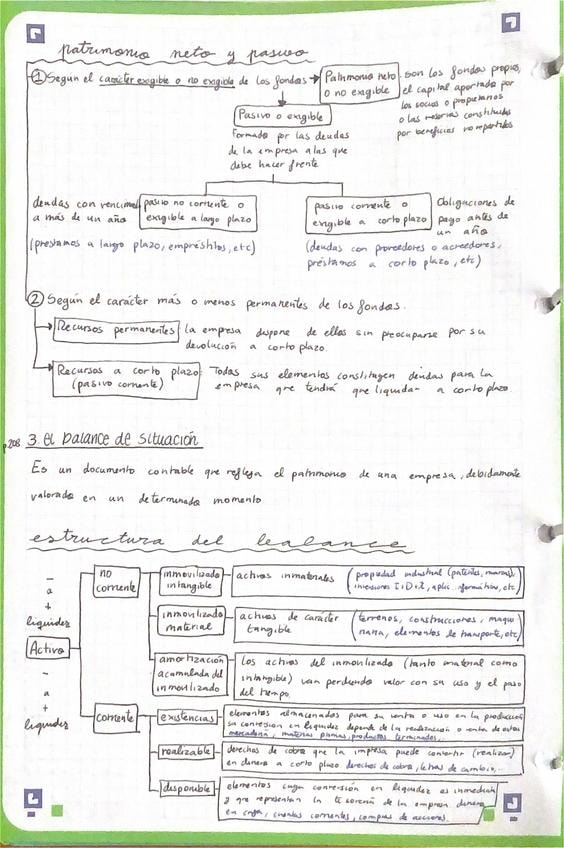 patrimonio neto y pasivo
① Según el carácter exigible o no exigible de los fondos → Patrimonio neto o no exigible
son los fondos propios,
el capital aportado por
los socios o propietarios
o las reservas constituidas
por beneficios no repartidos
Pasivo o exigible
Formado por las deudas
de la empresa a las que
debe hacer frente
deudas con vencimien
a más de un año
pasivo no corriente o
exigible a largo plazo
(préstamos a largo plazo, empréstitos, etc)
pasivo corriente o
exigible a corto plazo
Obligaciones de
pago antes de
un año
(deudas con proveedores o acreedores,
préstamos a corto plazo, etc)
② Según el carácter más o menos permanentes de los fondos.
Recursos permanentes: la empresa dispone de ellos sin preocuparse por su
devolución a corto plazo.
Recursos a corto plazo: Todas sus elementos constituyen deudas para la
(pasivo corriente) empresa que tendrá que liquidar a corto plazo
p.208 3. el balance de situación
Es un documento contable que refleja el patrimonio de una empresa, debidamente
valorado en un determinado momento
estructura del balance
- a + liquidez
Activo
- a + liquidez
no
corriente
inmovilizado
intangible
activos inmateriales
(propiedad industrial (patentes, marcas),
inversiones I+D+i, aplic. informáticas, etc)
inmovilizado
material
activos de carácter
tangible
(terrenos, construcciones, maqui
naria, elementos de transporte, etc)
amortización
acumulada del
inmovilizado
Los activos del inmovilizado (tanto material como
intangible) van perdiendo valor con su uso y el paso
del tiempo.
corriente
existencias
elementos almacenados para su venta o uso en la producción
su conversión en liquidez depende de la realización o venta de estos
mercadería, materias primas, productos terminados...
realizable
derechos de cobro que la empresa puede convertir (realizar)
en dinero a corto plazo derechos de cobro, letras de cambio,...
disponible
elementos cuya conversión en liquidez es inmediata
y que representan la tesorería de la empresa dinero
en caja, cuentas corrientes, compras de acciones.